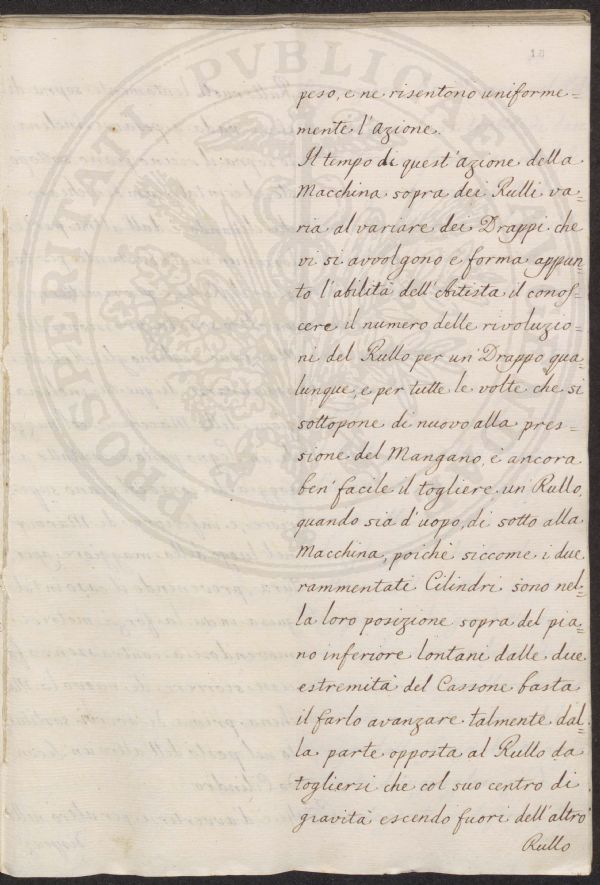 51
peso, e ne risentono uniforme=
mente l'azione.
Il tempo di quest'azione della
Macchina sopra dei Rulli va=
ria al variare dei Drappi che
vi si avvolgono e forma appun=
to l'abilità dell'Artista il conos=
cere il numero delle rivoluzio=
ni del Rullo per un Drappo qua=
lunque, e per tutte le volte che si
sottopone di nuovo alla pres=
sione del Mangano, è ancora
ben' facile il togliere un Rullo,
quando sia d'uopo, di sotto alla
Macchina, poiché siccome i due
rammentati Cilindri sono nel=
la loro posizione sopra del pia=
no inferiore lontani dalle due
estremità del Cassone basta
il farlo avanzare talmente dal=
la parte opposta al Rullo da
togliersi che col suo centro di
gravità escendo fuori dell'altro
Rullo
PROSPERITATI PUBLICAE